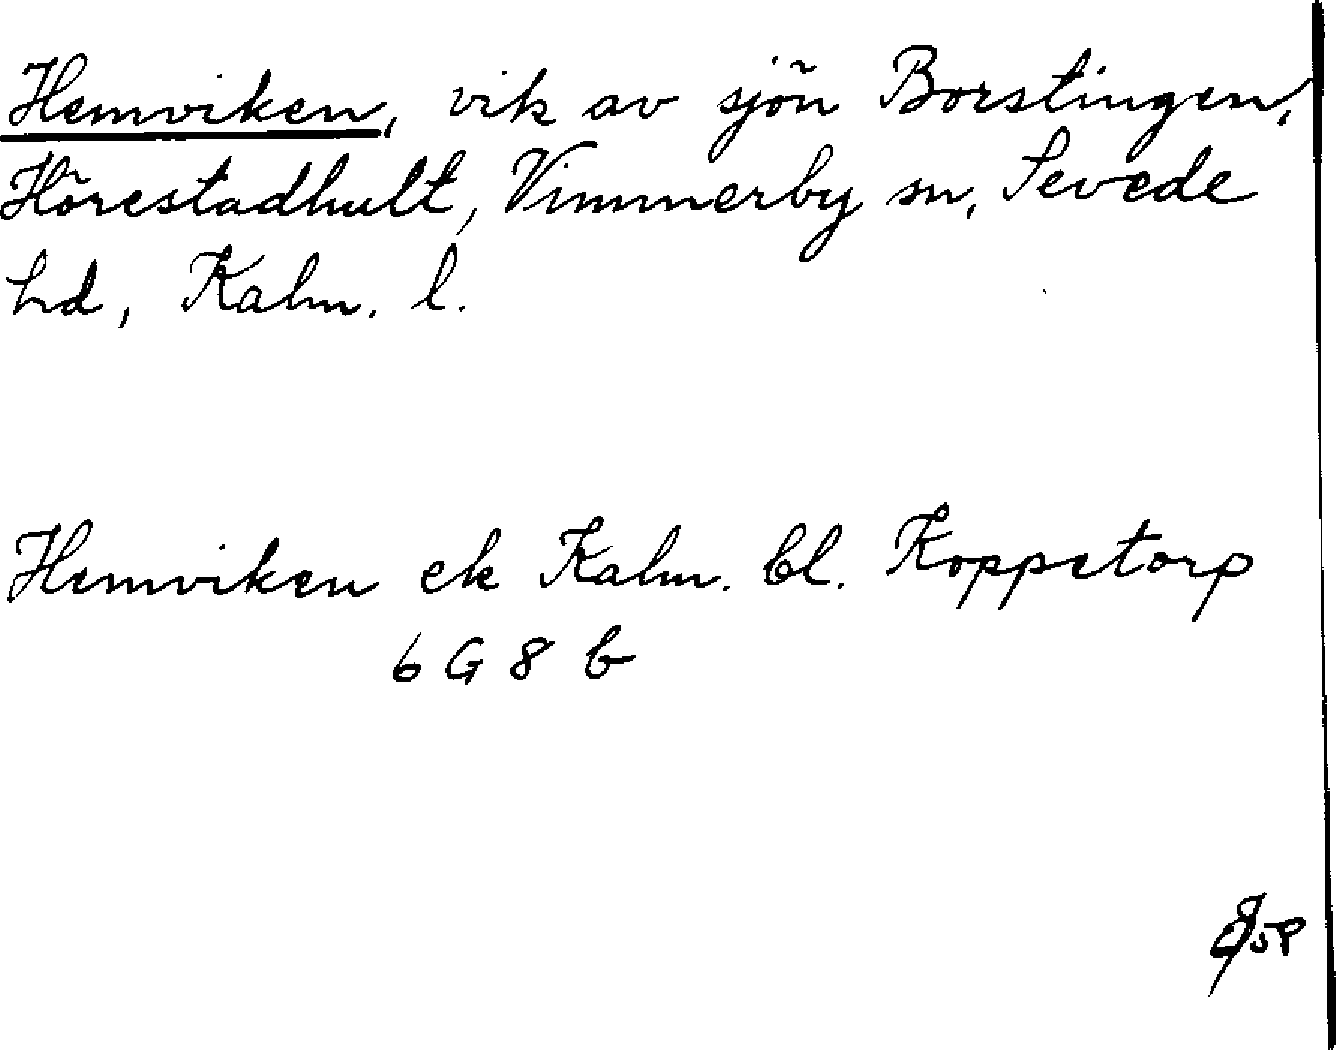 Hemviken, vik av sjön Borstingen,
Hörestadhult, Vimmerby sn, Sevede
hd, Kalm. l.
Hemviken ek Kalm. bl. Koppetorp
6 G 8 b